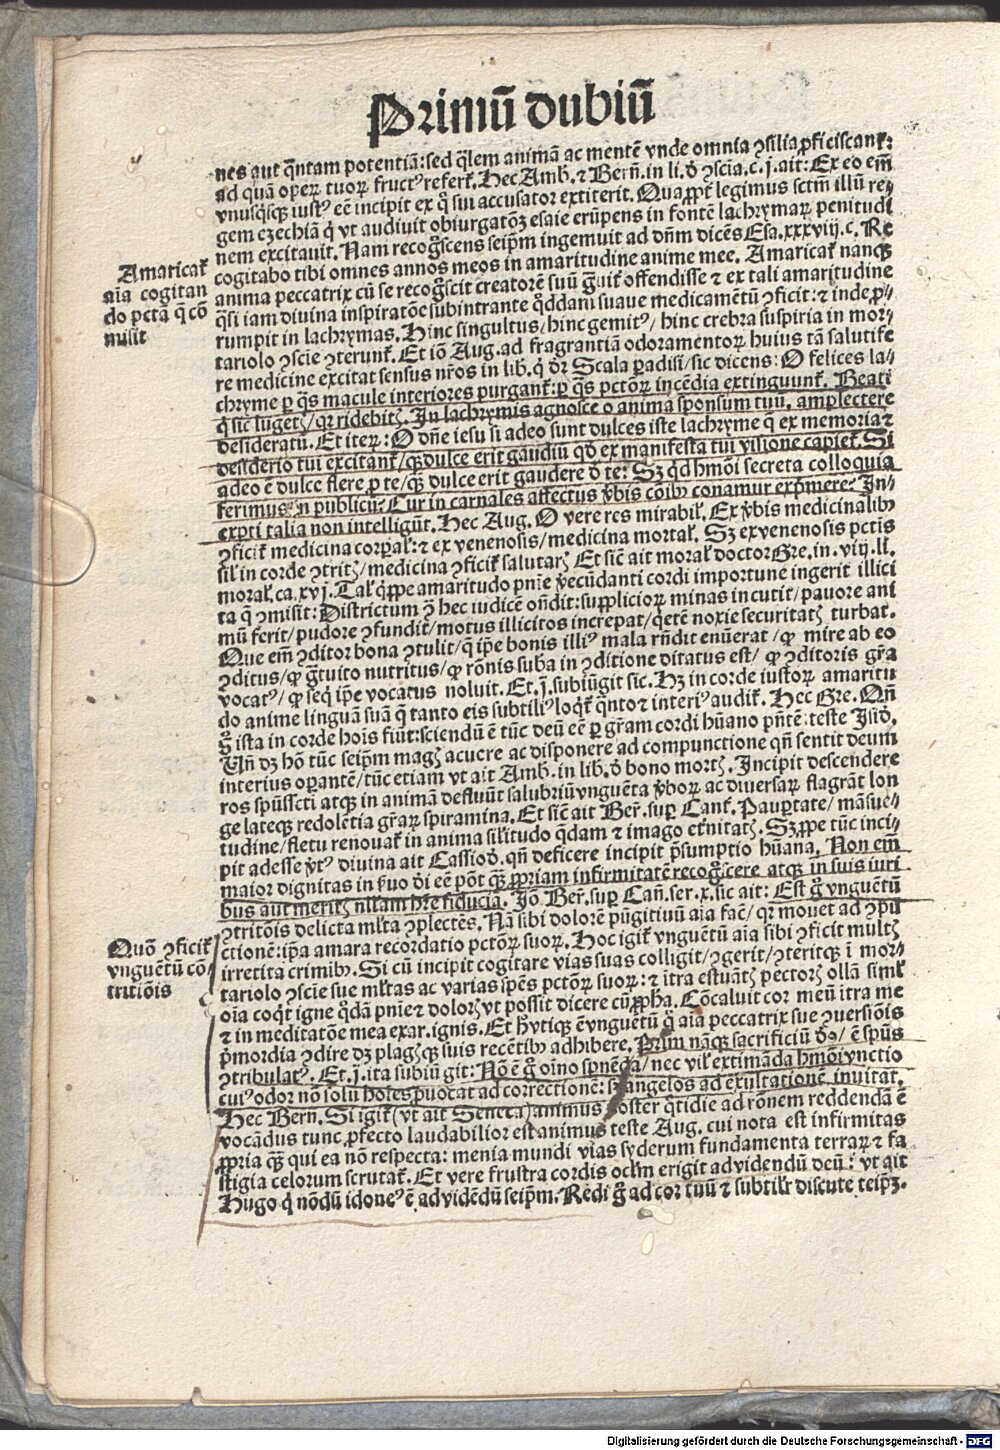 Primū dubiū
nes aut q̄ntam potentiā: sed q̄lem animā ac mentē vnde omnia ꝯsilia ꝓficiscanť:
ad quā operꝝ tuoꝝ fructꝰ referť. Hec Amb. ⁊ Berñ. in li. ð ꝯscia. c. j. ait: Ex eo em̄
vnusq̇sqꝫ iustꝰ eē incipit ex q̊ sui accusator extiterit. Quaꝓpť legimus sctm̄ illū re⸗
gem ezechiā q̇ vt audiuit obiurgatōꝫ esaie erūpens in fontē lachrymaꝝ penitudi
nem excitauit. Nam recog̊scens seipm̄ ingemuit ad dn̄m dicēs Esa. xxxviij. c. Re
cogitabo tibi omnes annos meos in amaritudine anime mee. Amaricať nanqꝫ
anima peccatrix cū se recog̊scit creatorē suū g̊uiť offendisse ⁊ ex tali amaritudine
q̄si iam diuina inspiratōe subintrante q̊ddam suaue medicamētū ꝯficit: ⁊ inde ꝓ⸗
rumpit in lachrymas. Hinc singultus/ hinc gemitꝰ/ hinc crebra suspiria in mor⸗
tariolo ꝯscie ꝯterunť. Et iō Aug. ad fragrantiā odoramentoꝝ huius tā salutife
re medicine excitat sensus nr̄os in lib. q̇ dr̄ Scala ꝑadisi/ sic dicens: O felices la⸗
chryme ꝑ q̄s macule interiores purganť: ꝑ q̄s pctōꝝ incēdia extinguunť. Beati
q̇ sic lugetꝭ/ qꝛ ridebitꝭ. In lachrymis agnosce o anima sponsum tuū. amplectere
desideratū. Et iteꝝ: O dn̄e iesu si adeo sunt dulces iste lachryme q̄ ex memoria ⁊
desiderio tui excitanť/ qꝫ dulce erit gaudiū qd̓ ex manifesta tui visione capieť. Si
adeo ē dulce flere ꝓ te/ qꝫ dulce erit gaudere ð te: Sꝫ qd̓ hmōi secreta colloquia
ferimus in publicū: Cur in carnales affectus v̓bis cōibꝰ conamur exp̄mere: In⸗
exꝑti talia non intelligūt. Hec Aug. O vere res mirabiľ. Ex v̓bis medicinalibꝰ
ꝯficiť medicina corꝑaľ: ⁊ ex venenosis/ medicina mortaľ. Sꝫ ex venenosis pctīs
siľ in corde ꝯtritꝭ/ medicina ꝯficiť salutarꝭ Et sic̄ ait moraľ doctor Gre. in. viij. li.
moraľ. ca. xvj. Taľ q̇ppe amaritudo pnīe v̓ecūdanti cordi importune ingerit illici
ta q̄ ꝯmisit: Districtum ꝙ̄ hec iudicē on̄dit: supplicioꝝ minas incutit/ pauore ani
mū ferit/ pudore ꝯfundit/ motus illicitos increpat/ q̇etē noxie securitatꝭ turbat.
Que em̄ ꝯditor bona ꝯtulit/ q̄ ip̄e bonis illiꝰ mala rn̄dit enūerat/ ꝙ mire ab eo
ꝯditus/ ꝙ g̊tuito nutritus/ ꝙ rōnis suba in ꝯditione ditatus est/ ꝙ ꝯditoris gr̄a
vocatꝰ/ ꝙ seq̇ ip̄e vocatus noluit. Et. j. subiūgit sic. Hꝫ in corde iustoꝝ amaritu
do anime linguā suā q̄ tanto eis subtiliꝰ loq̇ť q̄nto ⁊ interiꝰ audiť. Hec Gre. Qn̄
g̊ ista in corde hoīs fiūt: sciendū ē tūc deū eē ꝑ gr̄am cordi hūano pn̄tē. teste Isið.
Vn̄ dꝫ hō tūc seipm̄ magꝭ acuere ac disponere ad compunctione qn̄ sentit deum
interius oꝑantē/ tūc etiam vt ait Amb. in lib. ð bono mortꝭ. Incipit descendere
ros spūsscti atqꝫ in animā defluūt salubriū vnguēta v̓boꝝ ac diuersaꝝ flagrāt lon
ge lateqꝫ redolētia gr̄aꝝ spiramina. Et sic̄ ait Ber̄. suꝑ Canť. Pauꝑtate/ māsue⸗
tudine/ fletu renouať in anima sil̓itudo q̄dam ⁊ imago et̓nitatꝭ. Sꝫ ꝓpe tūc inci⸗
pit adesse v̓tꝰ diuina ait Cassioð. qn̄ deficere incipit p̄sumptio hūana. Non em̄
maior dignitas in ẜuo ði eē pōt qꝫ ꝓpriam infirmitatē recog̊scere atqꝫ in suis iuri
bus aut meritꝭ nullam hr̄e fiduciā. Iō Ber̄. suꝑ Can̄. ser. x. sic ait: Est g̊ vnguētū
ꝯtritōis delicta ml̓ta ꝯplectēs. Nā sibi dolorē pūgitiuū aīa fac̄/ qꝛ mouet ad ꝯpū
ctionē: ip̄a amara recordatio pctōꝝ suoꝝ. Hoc igiť vnguētū aīa sibi ꝯficit multꝭ
irretita crimibꝰ. Si cū incipit cogitare vias suas colligit/ ꝯgerit/ ꝯteritqꝫ ī mor⸗
tariolo ꝯscie sue ml̓tas ac varias spēs pctōꝝ suoꝝ: ⁊ itra estuātꝭ pectorꝭ ollā siml̓
oīa coq̇t igne q̊dā pnīe ⁊ dolorꝭ vt possit dicere cū ꝓpha. Cōcaluit cor meū itra me
⁊ in meditatōe mea exar. ignis. Et h̓ vtiqꝫ ē vnguētū q̊ aīa peccatrix sue ꝯuersiōis
p̄mordia ꝯdire dꝫ plagꝭqꝫ suis recētibꝰ adhibere. Prim̄ nāqꝫ sacrificiū ðo/ ē spūs
ꝯtribulatꝰ. Et. j. ita subiūgit: Nō ē g̊ oīno spnēda/ nec vil̓ extimāda hmōi vnctio
cuiꝰ odor nō solū hoīes ꝓuocat ad correctionē: sꝫ angelos ad exultationē inuitat.
Hec Bern̄. Si igiť (vt ait Seneca) animus noster q̊tidie ad rōnem reddendā ē
vocādus tunc ꝓfecto laudabilior est animus teste Aug. cui nota est infirmitas
ꝓpria qꝫ qui ea nō respecta: menia mundi vias syderum fundamenta terraꝝ ⁊ fa
stigia celorum scrutať. Et vere frustra cordis oclm̄ erigit ad videndū deū: vt ait
Hugo q̇ nōdū idoneꝰ ē ad vidēdū seipm̄. Redi g̊ ad cor tuū ⁊ subtil̓r discute teip̄ꝫ.
Amaricať
aīa cogitan
do pctā q̄ cō
misit
Quō ꝯficiť
vnguētū cō
tritiōis
Digitalisierung gefördert durch die Deutsche Forschungsgemeinschaft - DFG